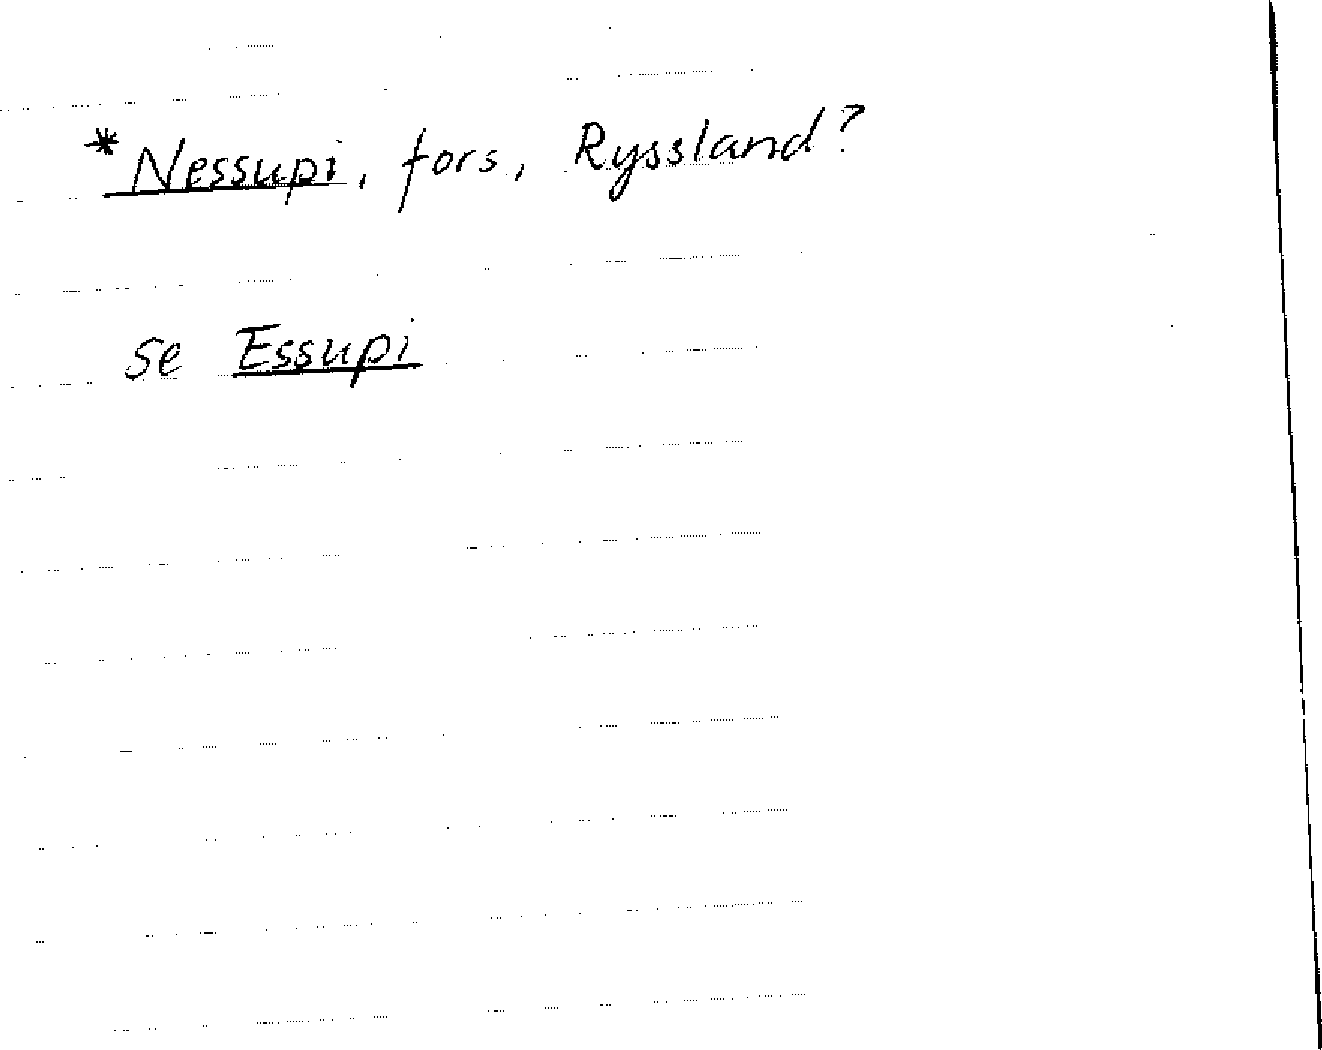 *Nessupi, fors, Ryssland?
se Essupi